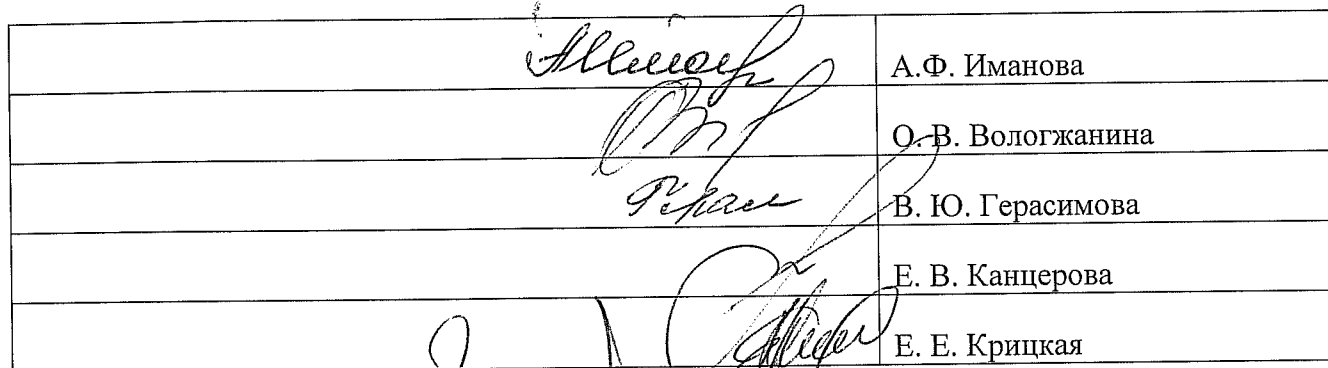 А.Ф. Иманова
О. В. Вологжанина
В. Ю. Герасимова
Е. В. Канцерова
Е. Е. Крицкая